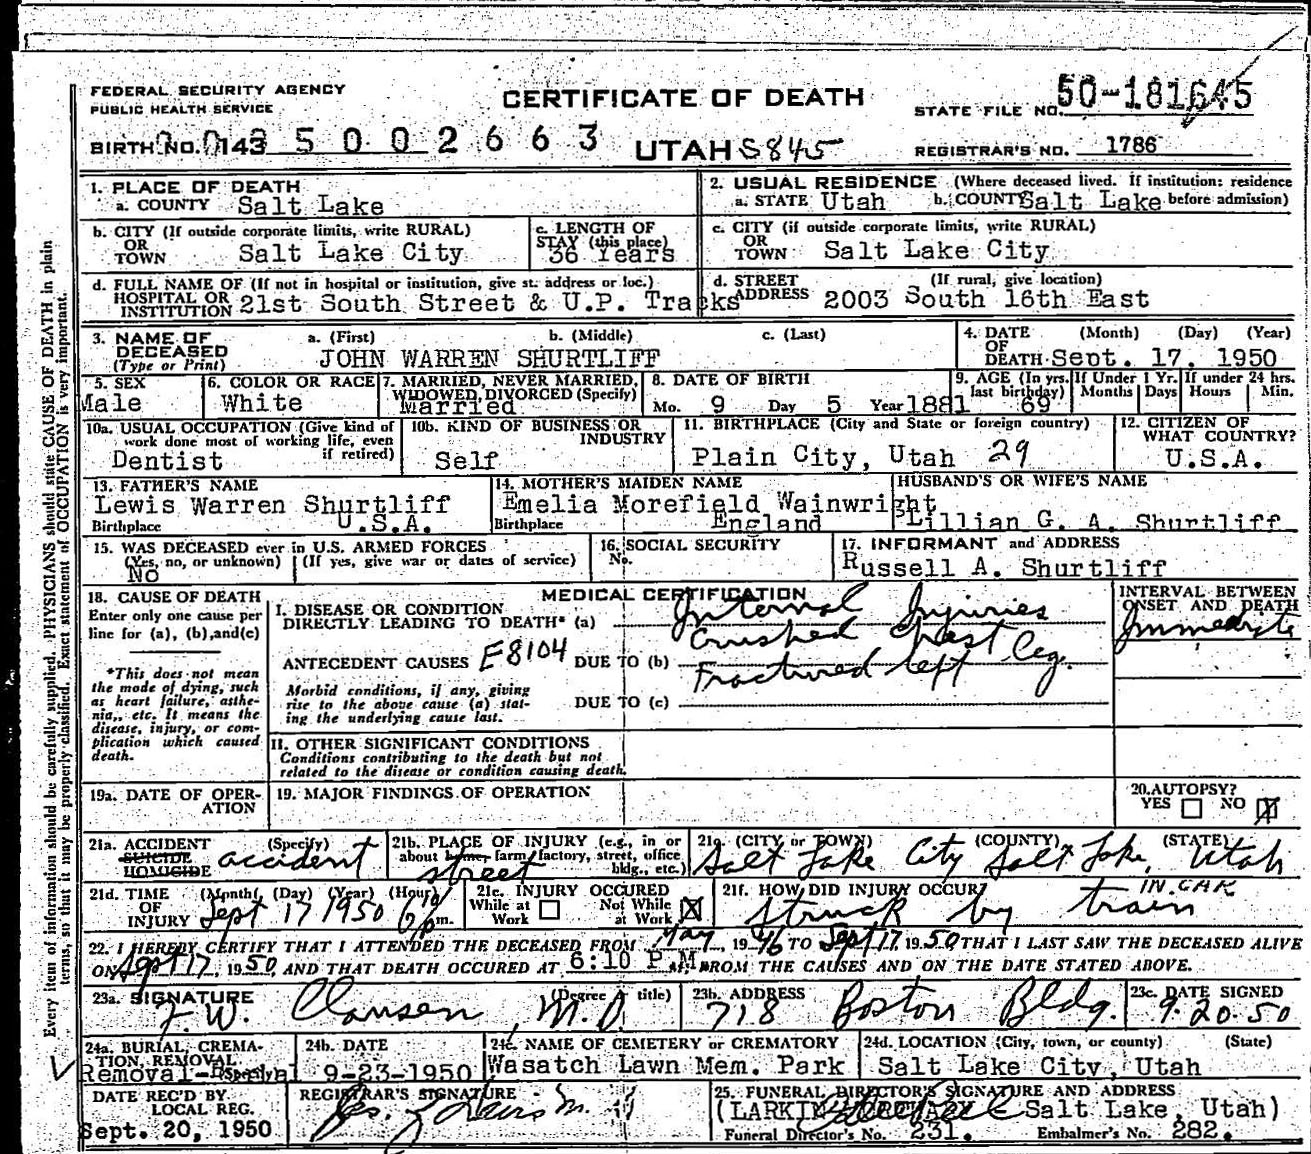 FEDERAL SECURITY AGENCY
PUBLIC HEALTH SERVICE
CERTIFICATE OF DEATH
STATE FILE NO. 50-181645
BIRTH NO. 143 5002663
UTAH S845
REGISTRAR'S NO. 1786
1. PLACE OF DEATH
a. COUNTY Salt Lake
2. USUAL RESIDENCE (Where deceased lived. If institution: residence before admission)
a. STATE Utah b. COUNTY Salt Lake
b. CITY (If outside corporate limits, write RURAL) OR TOWN Salt Lake City
c. LENGTH OF STAY (this place) 36 Years
c. CITY (if outside corporate limits, write RURAL) OR TOWN Salt Lake City
d. FULL NAME OF (If not in hospital or institution, give st. address or loc.) HOSPITAL OR INSTITUTION 21st South Street & U.P. Tracks
d. STREET ADDRESS (If rural, give location) 2003 South 16th East
3. NAME OF DECEASED (Type or Print) a. (First) b. (Middle) c. (Last)
JOHN WARREN SHURTLIFF
4. DATE OF DEATH (Month) (Day) (Year) Sept. 17, 1950
5. SEX Male
6. COLOR OR RACE White
7. MARRIED, NEVER MARRIED, WIDOWED, DIVORCED (Specify) Married
8. DATE OF BIRTH Mo. 9 Day 5 Year 1881
9. AGE (In yrs. last birthday) 69
If Under 1 Yr. Months Days
If under 24 hrs. Hours Min.
10a. USUAL OCCUPATION (Give kind of work done most of working life, even if retired) Dentist
10b. KIND OF BUSINESS OR INDUSTRY Self
11. BIRTHPLACE (City and State or foreign country) Plain City, Utah 29
12. CITIZEN OF WHAT COUNTRY? U.S.A.
13. FATHER'S NAME Lewis Warren Shurtliff
Birthplace U.S.A.
14. MOTHER'S MAIDEN NAME Emelia Morefield Wainwright
Birthplace England
HUSBAND'S OR WIFE'S NAME Lillian G. A. Shurtliff
15. WAS DECEASED ever in U.S. ARMED FORCES (Yes, no, or unknown) (If yes, give war or dates of service) No
16. SOCIAL SECURITY No.
17. INFORMANT and ADDRESS Russell A. Shurtliff
18. CAUSE OF DEATH
Enter only one cause per line for (a), (b), and (c)
*This does not mean the mode of dying, such as heart failure, asthenia, etc. It means the disease, injury, or complication which caused death.
MEDICAL CERTIFICATION
I. DISEASE OR CONDITION DIRECTLY LEADING TO DEATH* (a) Internal Injuries
Crushed Chest
ANTECEDENT CAUSES E8104 DUE TO (b) Fractured left Leg.
Morbid conditions, if any, giving rise to the above cause (a) stating the underlying cause last.
DUE TO (c)
INTERVAL BETWEEN ONSET AND DEATH
II. OTHER SIGNIFICANT CONDITIONS
Conditions contributing to the death but not related to the disease or condition causing death.
19a. DATE OF OPERATION
19. MAJOR FINDINGS OF OPERATION
20. AUTOPSY? YES NO X
21a. ACCIDENT SUICIDE HOMICIDE (Specify) accident
21b. PLACE OF INJURY (e.g., in or about home, farm, factory, street, office bldg., etc.) street
21c. (CITY or TOWN) (COUNTY) (STATE) Salt Lake City Salt Lake, Utah
21d. TIME OF INJURY (Month) (Day) (Year) (Hour) Sept 17 1950 6/10 p m.
21e. INJURY OCCURED While at Work Not While at Work X
21f. HOW DID INJURY OCCUR? Struck by train IN CAR
22. I HEREBY CERTIFY THAT I ATTENDED THE DECEASED FROM May, 1946 TO Sept 17 1950 THAT I LAST SAW THE DECEASED ALIVE
ON Sept 17, 1950, AND THAT DEATH OCCURED AT 6:10 P.M. FROM THE CAUSES AND ON THE DATE STATED ABOVE.
23a. SIGNATURE (Degree or title) F.W. Clausen, M.D.
23b. ADDRESS 718 Boston Bldg.
23c. DATE SIGNED 9-20-50
24a. BURIAL, CREMATION, REMOVAL (Specify) Removal-Burial
24b. DATE 9-23-1950
24c. NAME OF CEMETERY or CREMATORY Wasatch Lawn Mem. Park
24d. LOCATION (City, town, or county) (State) Salt Lake City, Utah
DATE REC'D BY LOCAL REG. Sept. 20, 1950
REGISTRAR'S SIGNATURE
25. FUNERAL DIRECTOR'S SIGNATURE AND ADDRESS
(LARKIN MORTUARY Salt Lake, Utah)
Funeral Director's No. 231. Embalmer's No. 282.
Every item of information should be carefully supplied. PHYSICIANS should state CAUSE OF DEATH in plain
terms, so that it may be properly classified. Exact statement of OCCUPATION is very important.